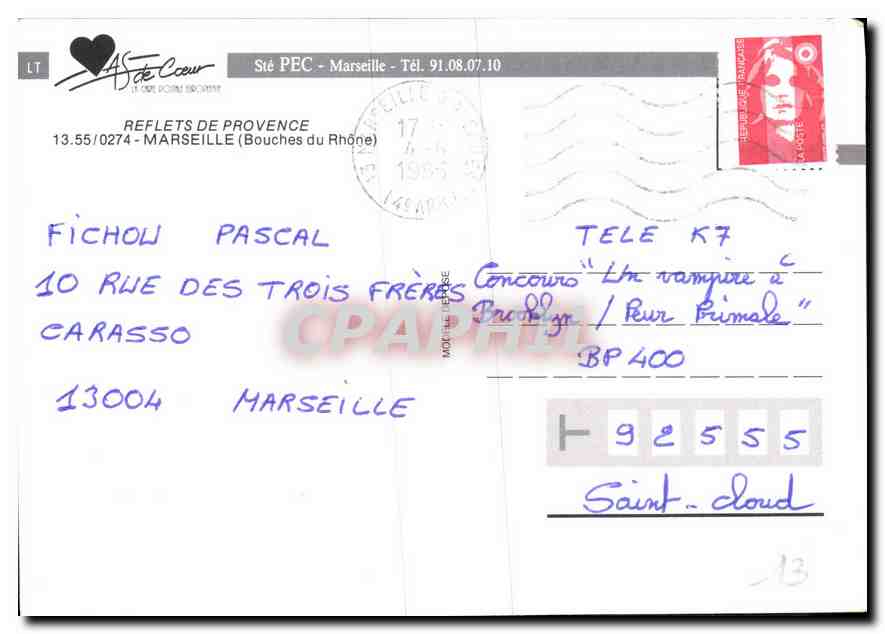 LT
AS de Cœur
LA CARTE POSTALE EUROPEENNE
Sté PEC - Marseille - Tél. 91.08.07.10
REFLETS DE PROVENCE
13.55/0274 - MARSEILLE (Bouches du Rhône)
13 MARSEILLE
17
4-4
(4e ARRT)
REPUBLIQUE FRANÇAISE
LA POSTE
FICHOU PASCAL
10 RUE DES TROIS FRÈRES
CARASSO
13004 MARSEILLE
MODELE DEPOSE
CPAPHIL
TELE K7
Concours "Un vampire à
Brooklyn / Peur Primale"
BP 400
92555
Saint-cloud
13